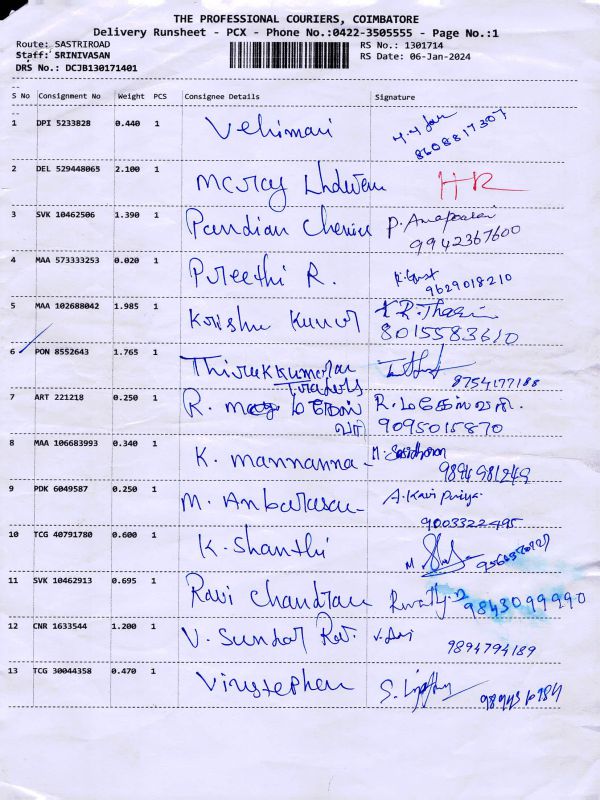 THE PROFESSIONAL COURIERS, COIMBATORE
Delivery Runsheet - PCX - Phone No.:0422-3505555 - Page No.:1
Route: SASTRIROAD RS No.: 1301714
Staff: SRINIVASAN RS Date: 06-Jan-2024
DRS No.: DCJB130171401
S No Consignment No Weight PCS Consignee Details Signature
1 DPI 5233828 0.440 1 Vehimari
8608817307
2 DEL 529448065 2.100 1 HR
3 SVK 10462506 1.390 1 Pandian
9942367600
4 MAA 573333253 0.020 1 Preethi R.
9629018210
5 MAA 102688042 1.985 1 Krishu Kumar
8015583610
6 PON 8552643 1.765 1 Thirukkumaran
Traders 8754177188
7 ART 221218 0.250 1 R.
9095015870
8 MAA 106683993 0.340 1 K. mannanna
9894981249
9 PDK 6049587 0.250 1 M. Anbarasan A. Kavi Priya.
9003322495
10 TCG 40791780 0.600 1 K. Shanthi
11 SVK 10462913 0.695 1 Ravi Chandran 9843099990
12 CNR 1633544 1.200 1 V. Sundar
9894794189
13 TCG 30044358 0.470 1 Vinstephen